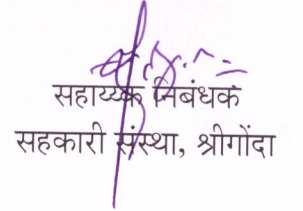 सहाय्यक निबंधक
सहकारी संस्था, श्रीगोंदा